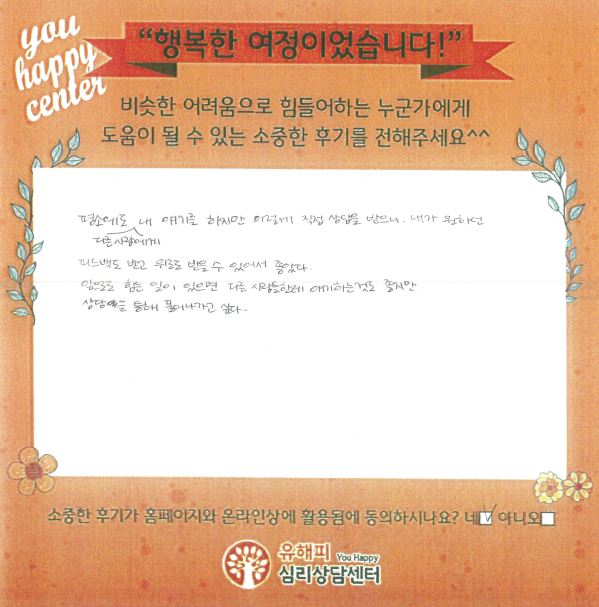 you
happy
center
“행복한 여정이었습니다!”
비슷한 어려움으로 힘들어하는 누군가에게
도움이 될 수 있는 소중한 후기를 전해주세요^^
평소에도 내 얘기를 하지만 이렇게 직접 상담을 받으니. 내가 원하던
다른 사람에게
피드백도 받고 위로도 받을 수 있어서 좋았다.
앞으로도 힘든 일이 있으면 다른 사람들한테 얘기하는것도 좋지만
상담을 통해 풀어나가고 싶다.
소중한 후기가 홈페이지와 온라인상에 활용됨에 동의하시나요? 네 아니오
유해피 You Happy
심리상담센터